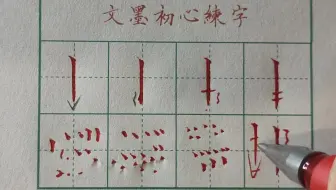 文墨初心練字